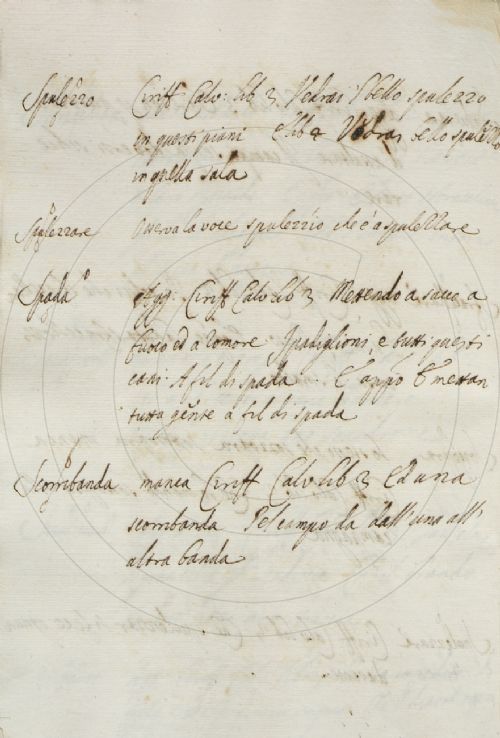 Spulezzo Ciriff Calv: lib 3 Vedrai bello spulezzo
in questi piani e lib 2 Vedrai bello spulezzo
in quella sala
Spulezzare Osserva la voce spulezzio che è a spulezzare
Spada Agg: Ciriff Calv lib 3 Mettendo a sacco a
fuoco ed a romore I padiglioni, e tutti questi
cani A fil di spada E appo E mettan
tutta gente a fil di spada
Scorribanda manca Ciriff Calv lib 3 Ed una
scorribanda Pel campo da dall' una all'
altra banda